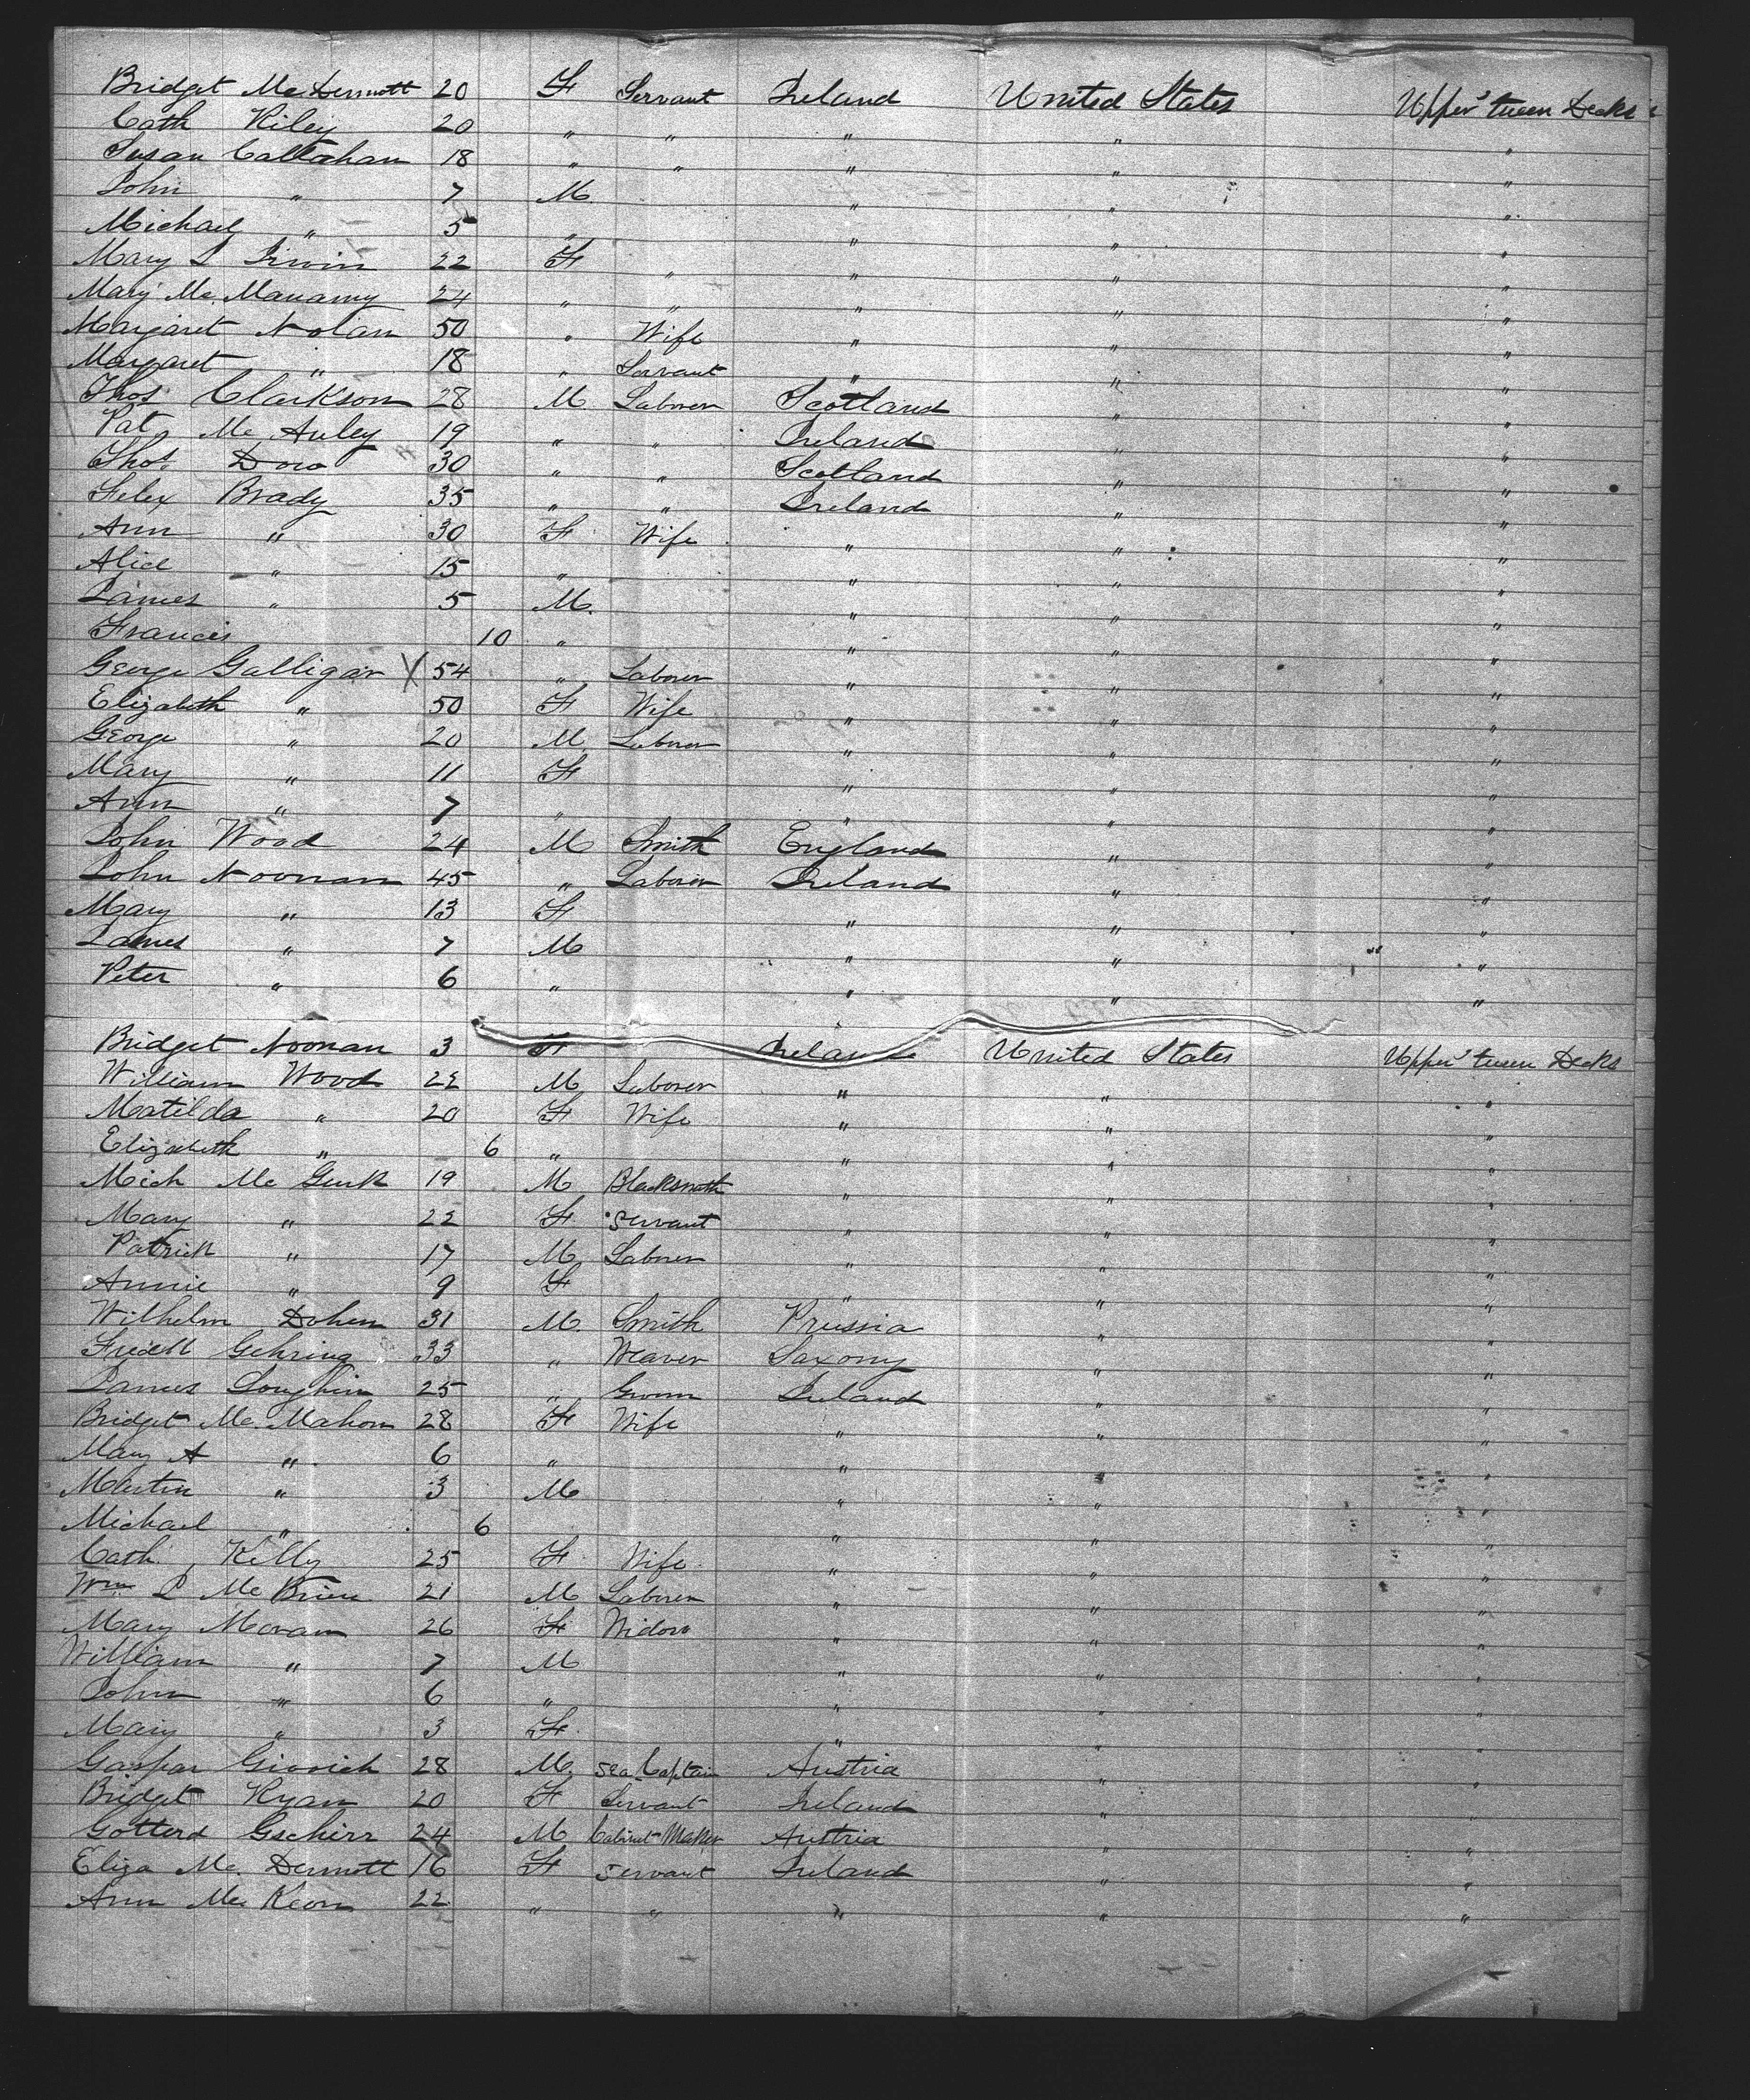 Bridget McDermott 20 F Servant Ireland United States Upper 'tween Decks
Cath Riley 20 " " " " "
Susan Callahan 18 " " " " "
John " 7 M " " "
Michael " 5 " " " "
Mary J Irwin 22 F " " " "
Mary Mc. Manamy 24 " " " " "
Margaret Nolan 50 " Wife " " "
Margaret " 18 " Servant " " "
Thos. Clarkson 28 M. Laborer Scotland " "
Pat Mc Auley 19 " " Ireland " "
Thos. Dow 30 " " Scotland " "
Felex Brady 35 " " Ireland " "
Ann " 30 F Wife " " "
Alice " 15 " " " "
James " 5 M. " " "
Francis 10 " " " "
George Galligan X 54 " Laborer " " "
Elizabeth " 50 F Wife " " "
George " 20 M Laborer " " "
Mary " 11 F " " "
Ann " 7 " " " "
John Wood 24 M Smith England " "
John Noonan 45 " Laborer Ireland " "
Mary " 13 F " " "
James " 7 M " " "
Peter " 6 " " " "
Bridget Noonan 3 F Ireland United States Upper 'tween Decks
William Wood 22 M Laborer " " "
Matilda " 20 F Wife " " "
Elizabeth " 6 " " " "
Mich Mc Gurk 19 M Blacksmith " " "
Mary " 22 F Servant " " "
Patrick " 17 M Laborer " " "
Annie " 9 F " " "
Wilhelm Dohm 31 M. Smith Prussia " "
Gehring 33 " Weaver Saxony " "
James Loughlin 25 " Groom Ireland " "
Bridget Mc. Mahon 28 F Wife " " "
Mary A " 6 " " " "
Martin " 3 M " " "
Michael " 6 " " "
Cath Kelly 25 F Wife " " "
Wm J Mc Brien 21 M Laborer " " "
Mary Moran 26 F Widow " " "
William " 7 M " " "
John " 6 " " " "
Mary " 3 F " " "
Gaspar 28 M. Sea Captain Austria " "
Bridget Ryan 20 F Servant Ireland " "
Gotterd Gschirr 24 M Cabinet Maker Austria " "
Eliza Mc. Dermott 16 F Servant Ireland " "
Ann Mc Keon 22 " " " " "